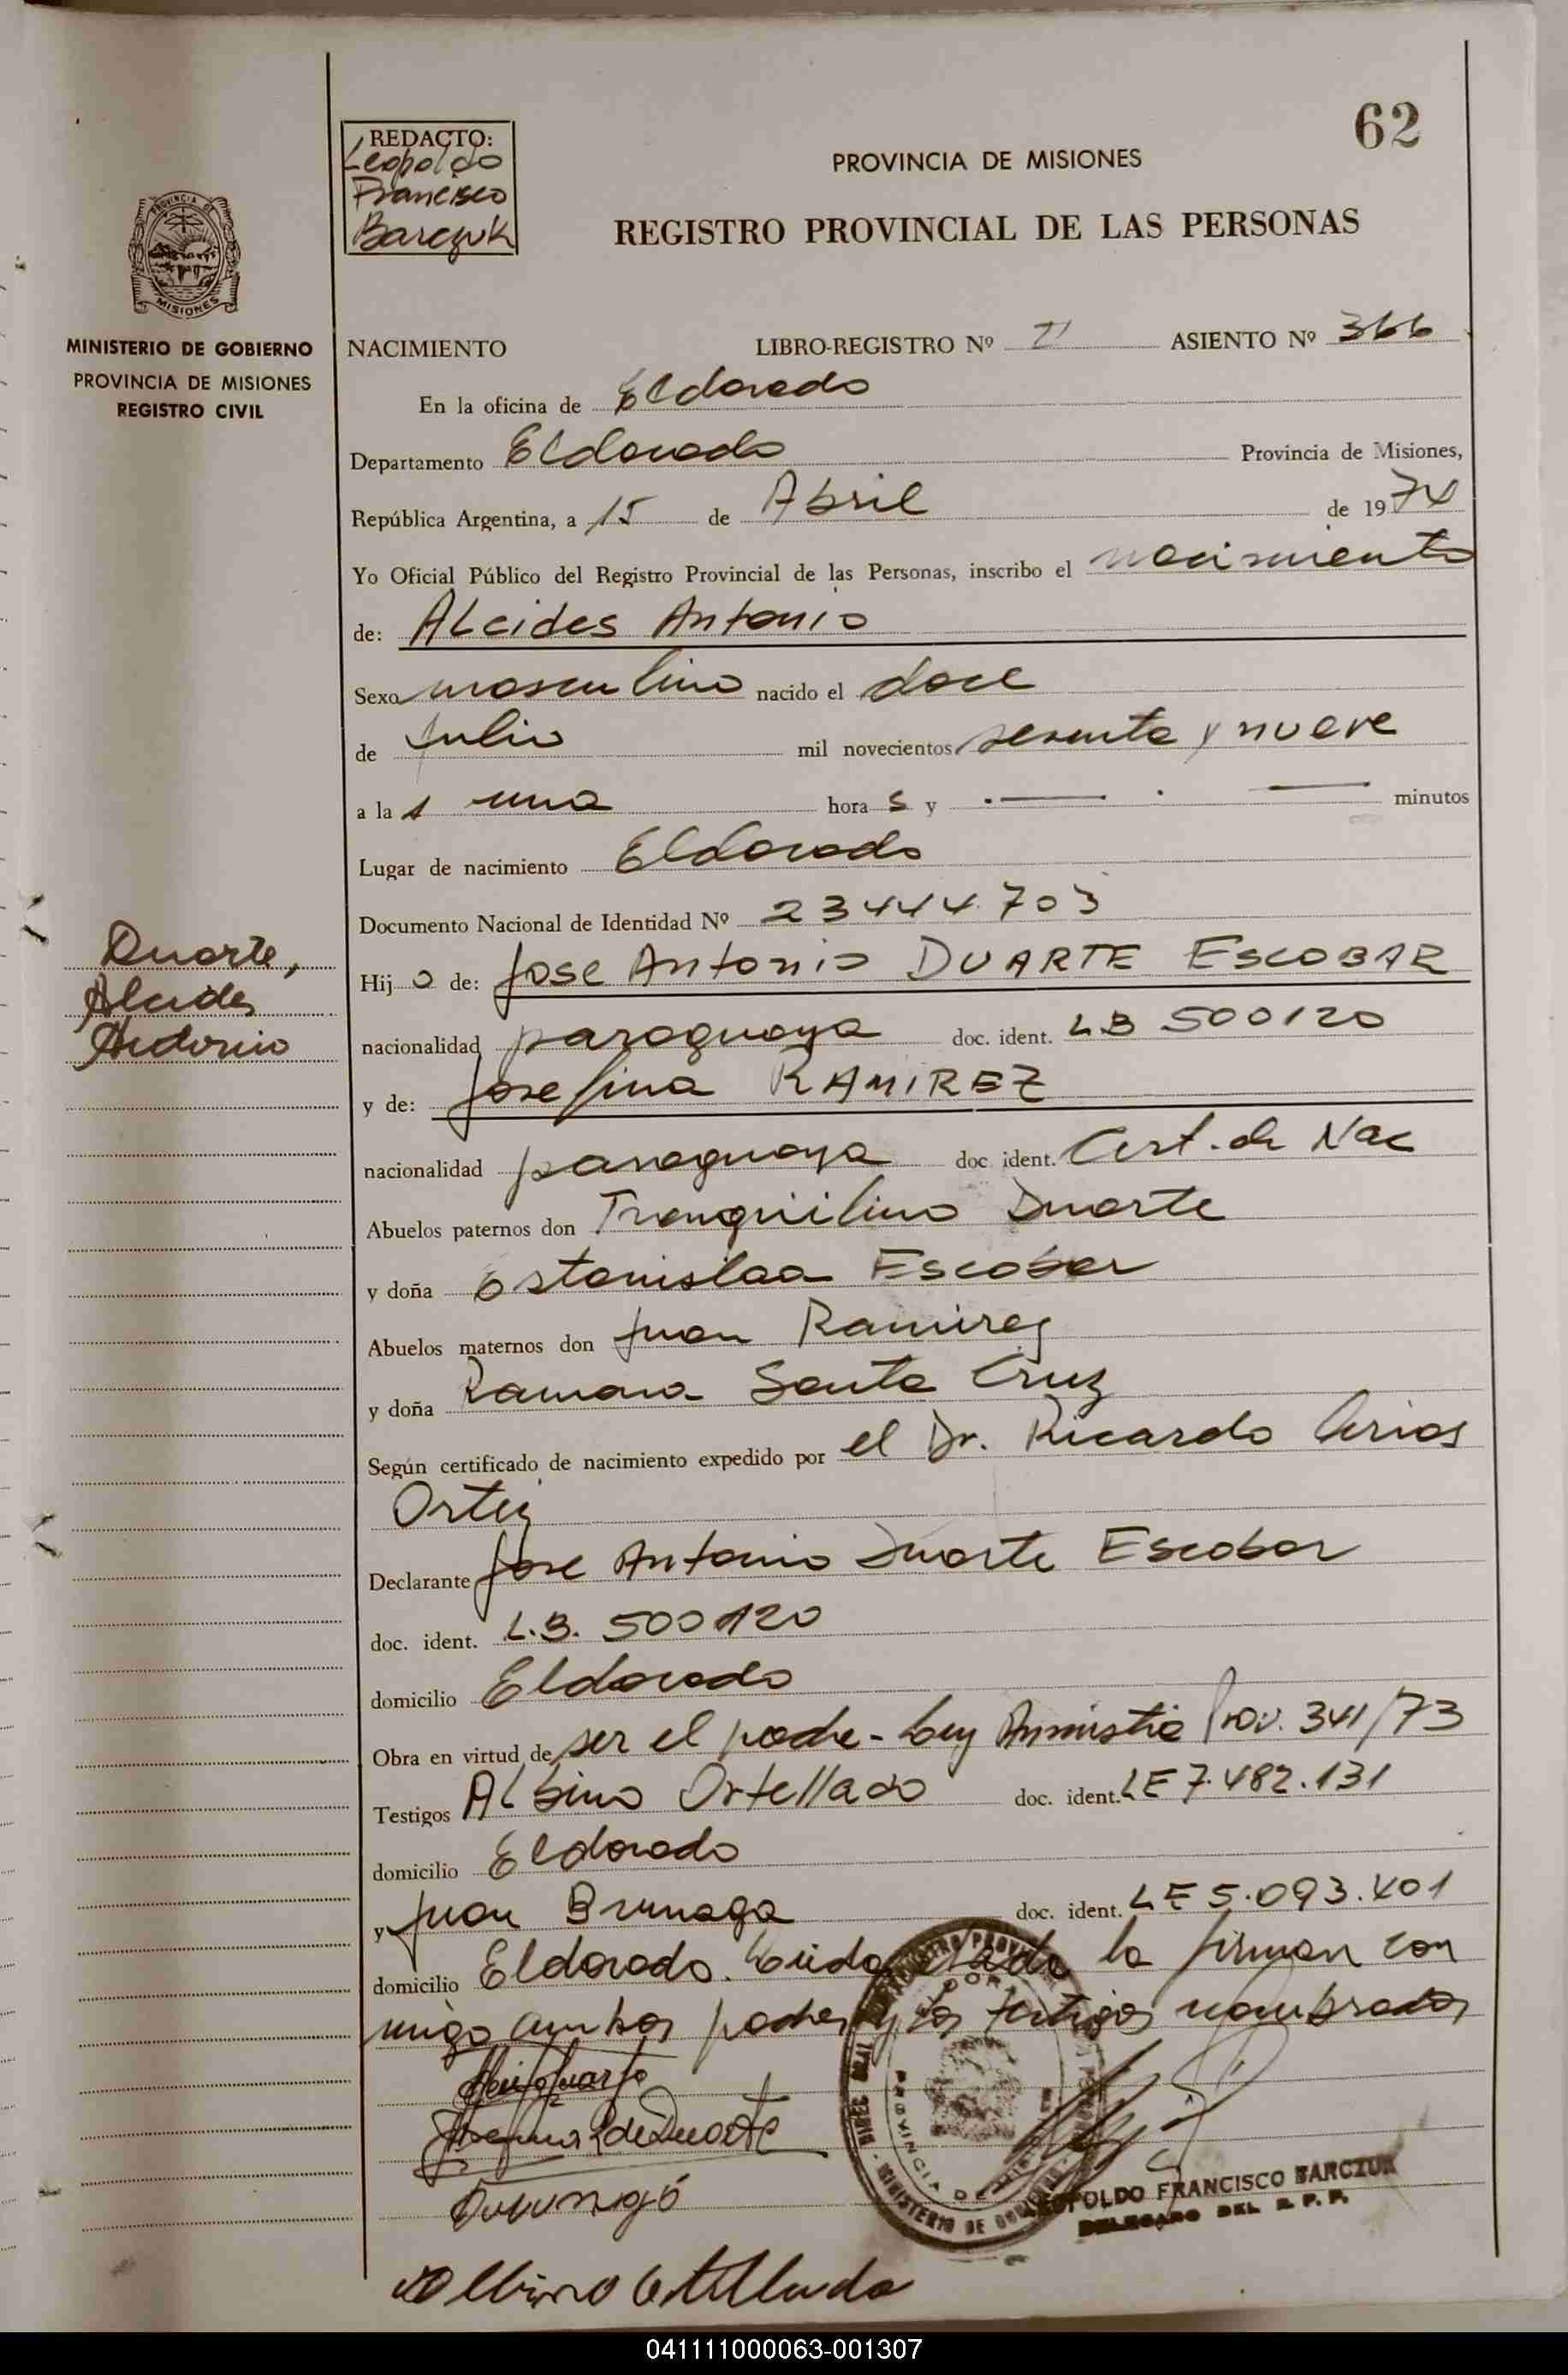 62
REDACTO:
Leopoldo
Francisco
Barczuk
PROVINCIA DE MISIONES
REGISTRO PROVINCIAL DE LAS PERSONAS
PROVINCIA DE
MISIONES
MINISTERIO DE GOBIERNO
PROVINCIA DE MISIONES
REGISTRO CIVIL
NACIMIENTO LIBRO-REGISTRO Nº ASIENTO Nº 366
En la oficina de Eldorado
Departamento Eldorado Provincia de Misiones,
República Argentina, a 15 de Abril de 1974
Yo Oficial Público del Registro Provincial de las Personas, inscribo el nacimiento
de: Alcides Antonio
Sexo masculino nacido el doce
de Julio mil novecientos sesenta y nueve
a la s una hora s y . — . — minutos
Lugar de nacimiento Eldorado
Documento Nacional de Identidad Nº 23444.703
Duarte,
Alcides
Antonio
Hij o de: Jose Antonio DUARTE ESCOBAR
nacionalidad paraguaya doc. ident. LB 500120
y de: Josefina RAMIREZ
nacionalidad paraguaya doc. ident. Cert. de Nac
Abuelos paternos don Tranquilino Duarte
y doña Estanislaa Escobar
Abuelos maternos don Juan Ramirez
y doña Ramona Santa Cruz
Según certificado de nacimiento expedido por el Dr. Ricardo Arias
Ortiz
Declarante Jose Antonio Duarte Escobar
doc. ident. L.B. 500120
domicilio Eldorado
Obra en virtud de ser el padre - Ley Amnistia Prov. 341/73
Testigos Albino Ortellado doc. ident. LE 7.482.131
domicilio Eldorado
y Juan Brunaga doc. ident. LE 5.093.401
domicilio Eldorado. Leida el acta la firman con
migo ambos padres y los testigos nombrados
Josefina R de Duarte
LEOPOLDO FRANCISCO BARCZUK
DELEGADO DEL R. P. P.
Albino Ortellado
041111000063-001307